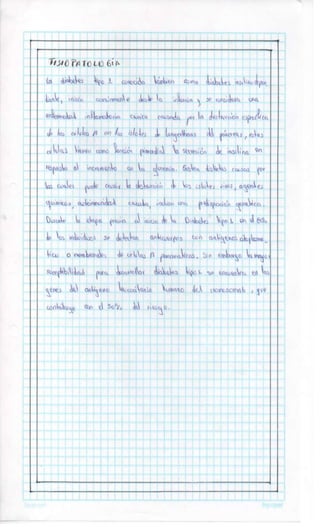 FISIOPATOLOGÍA
La diabetes tipo 1 conocida también como diabetes insulinodepen
diente, inicia comúnmente desde la infancia y se considera una
enfermedad inflamatoria crónica causada por la destrucción específica
de las células β en los islotes de Langerhans del páncreas, estas
células tienen como función primordial la secreción de insulina en
respuesta al incremento en la glucemia. Existen distintas causas por
las cuales puede ocurrir la destrucción de los islotes: virus, agentes
químicos, autoinmunidad cruzada, incluso una predisposición genética.
Durante la etapa previa al inicio de la Diabetes tipo 1 en el 80%
de los individuos se detectan anticuerpos con antígenos citoplasmá
ticos o membranales de células β pancreáticas. Sin embargo la mayor
susceptibilidad para desarrollar diabetes tipo 1 se encuentra en los
genes del antígeno leucocitario humano del cromosoma 6, que
contribuye con el 50% del riesgo.